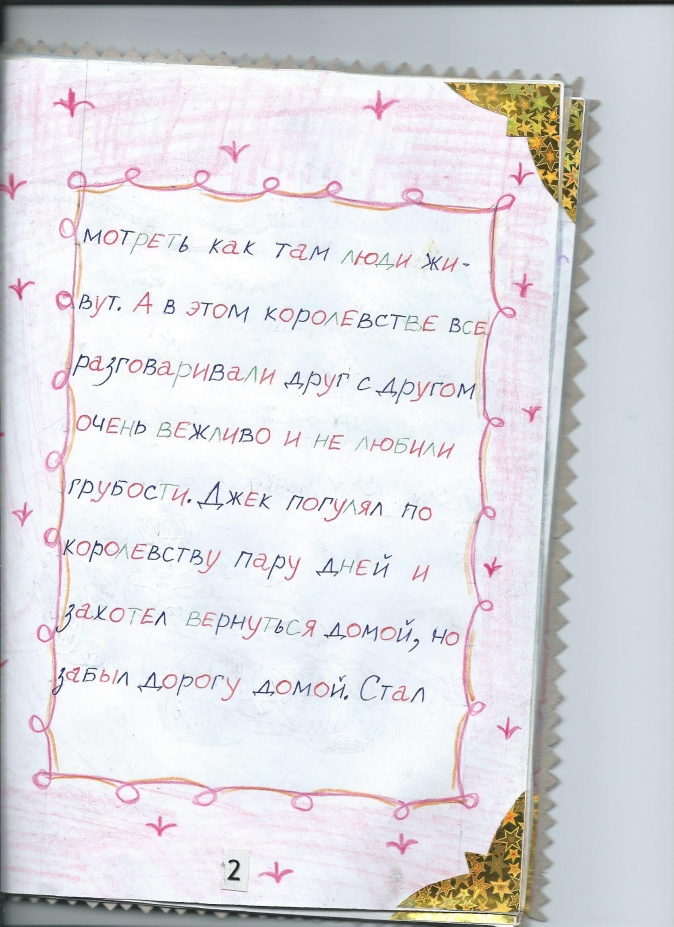 мотреть как там люди жи-
вут. А в этом королевстве все
разговаривали друг с другом
очень вежливо и не любили
грубости. Джек погулял по
королевству пару дней и
захотел вернуться домой, но
забыл дорогу домой. Стал
2